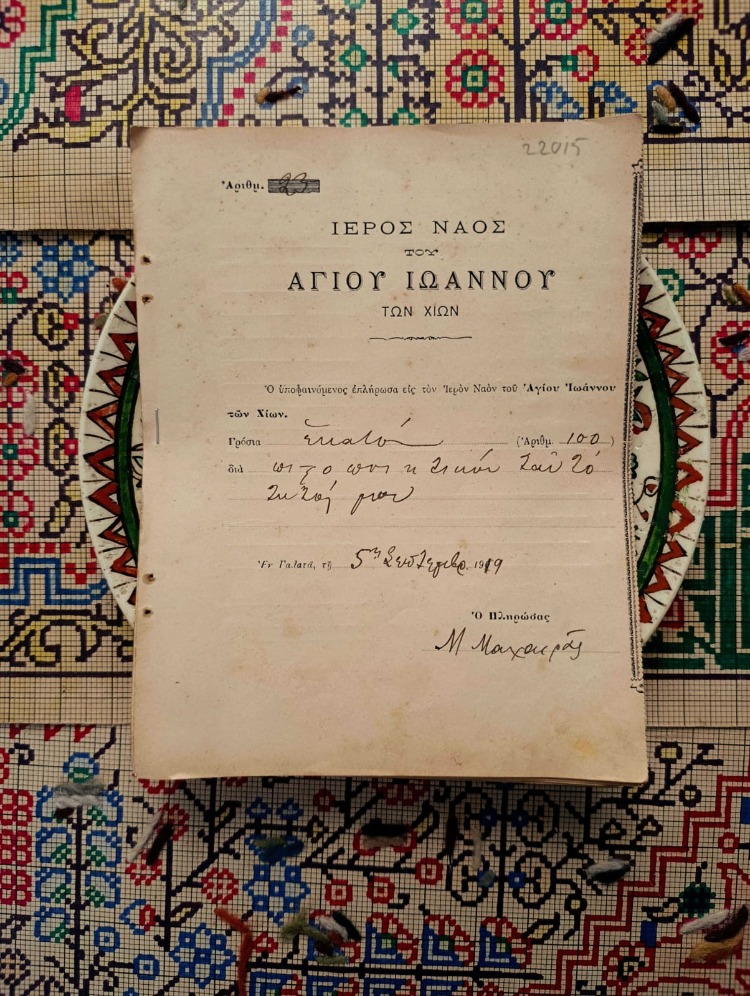 22015
Ἀριθμ. 23
ΙΕΡΟΣ ΝΑΟΣ
ΤΟΥ
ΑΓΙΟΥ ΙΩΑΝΝΟΥ
ΤΩΝ ΧΙΩΝ
Ὁ ὑποφαινόμενος ἐπλήρωσα εἰς τὸν Ἱερὸν Ναὸν τοῦ Ἁγίου Ἰωάννου
τῶν Χίων.
Γρόσια ἑκατόν (Ἀριθμ. 100)
διὰ
μου
Ἐν Γαλατᾷ, τῇ 5ῃ Σεπτεμβρ. 1919
Ὁ Πληρώσας
Μ Μαχαιρᾶς